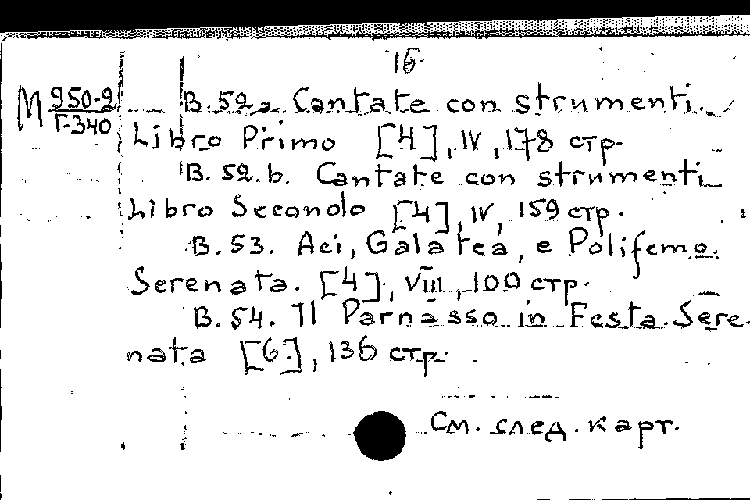 16.
М 950-2 / Г-340 B. 52 a. Cantate con strumenti.
Libro Primo [4], IV, 178 стр.
B. 52. b. Cantate con strumenti
Libro Secondo [4], IV, 159 стр.
B. 53. Aci, Galatea, e Polifemo.
Serenata. [4], VIII, 100 стр.
B. 54. Il Parnasso in Festa. Sere-
nata [6.], 136 стр.
См. след. карт.